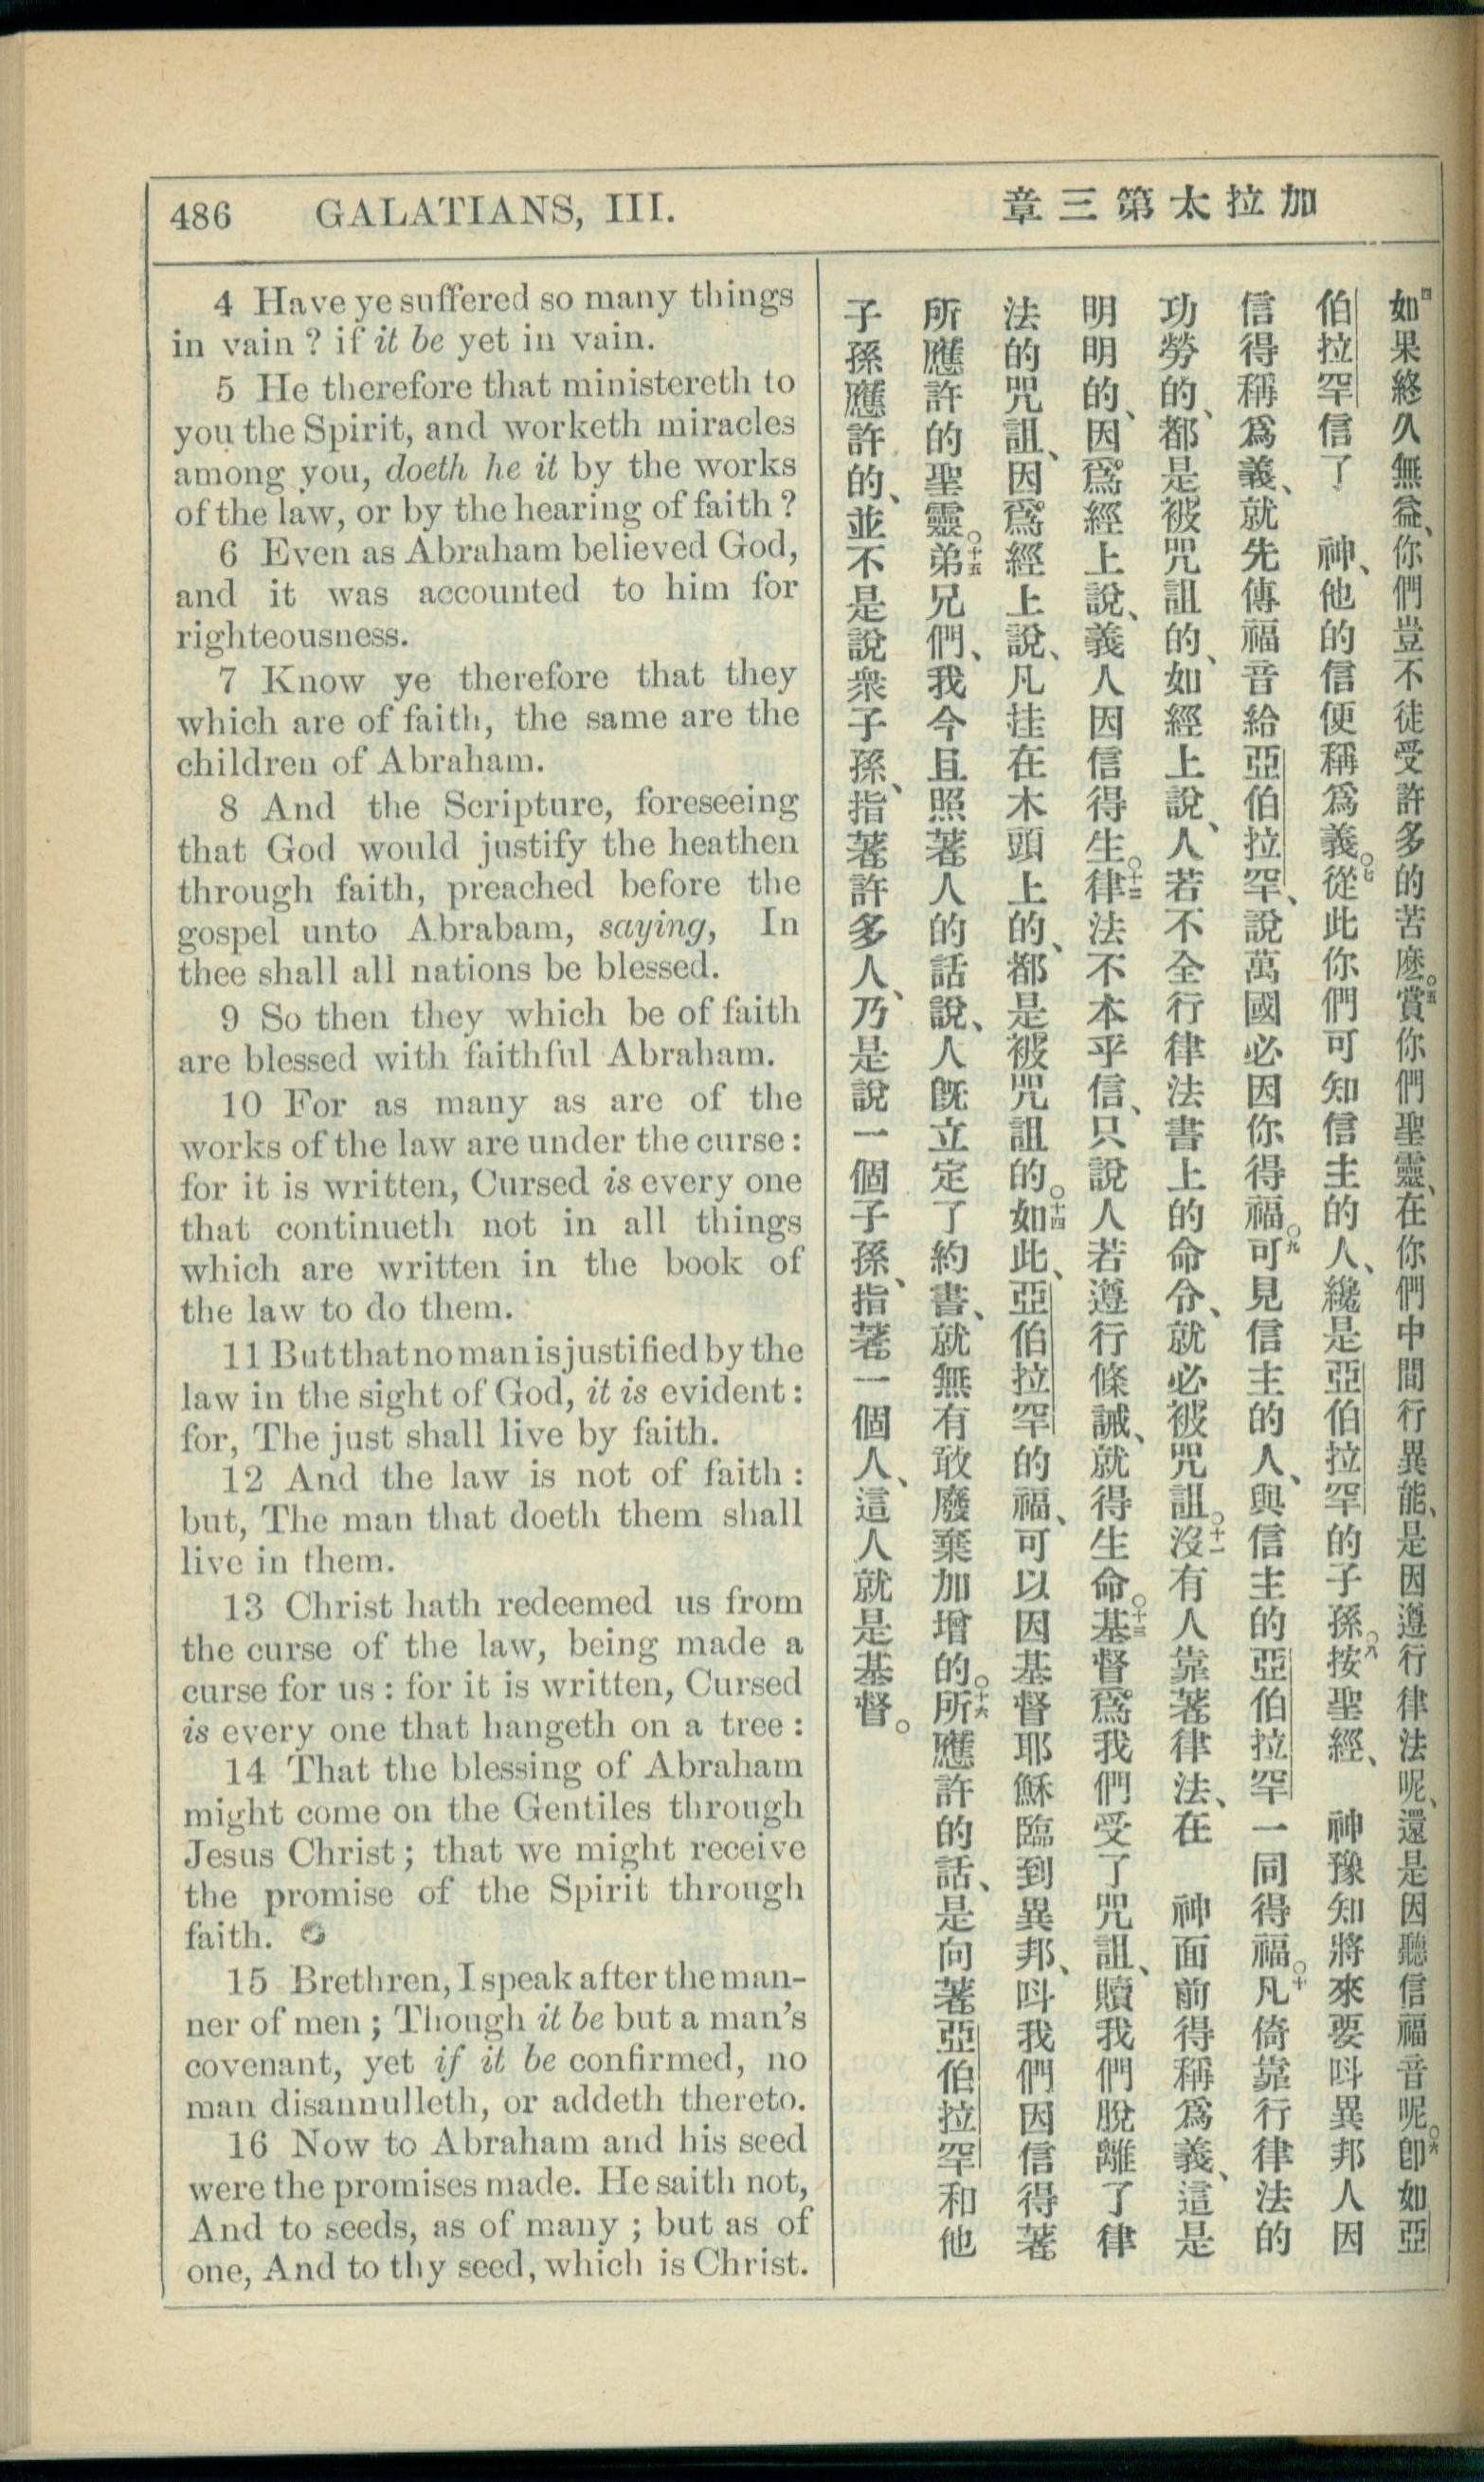 486 GALATIANS, III.
章三第太拉加
4 Have ye suffered so many things
in vain ? if it be yet in vain.
5 He therefore that ministereth to
you the Spirit, and worketh miracles
among you, doeth he it by the works
of the law, or by the hearing of faith ?
6 Even as Abraham believed God,
and it was accounted to him for
righteousness.
7 Know ye therefore that they
which are of faith, the same are the
children of Abraham.
8 And the Scripture, foreseeing
that God would justify the heathen
through faith, preached before the
gospel unto Abrabam, saying, In
thee shall all nations be blessed.
9 So then they which be of faith
are blessed with faithful Abraham.
10 For as many as are of the
works of the law are under the curse :
for it is written, Cursed is every one
that continueth not in all things
which are written in the book of
the law to do them.
11 But that no man is justified by the
law in the sight of God, it is evident :
for, The just shall live by faith.
12 And the law is not of faith :
but, The man that doeth them shall
live in them.
13 Christ hath redeemed us from
the curse of the law, being made a
curse for us : for it is written, Cursed
is every one that hangeth on a tree :
14 That the blessing of Abraham
might come on the Gentiles through
Jesus Christ ; that we might receive
the promise of the Spirit through
faith.
15 Brethren, I speak after the man-
ner of men ; Though it be but a man's
covenant, yet if it be confirmed, no
man disannulleth, or addeth thereto.
16 Now to Abraham and his seed
were the promises made. He saith not,
And to seeds, as of many ; but as of
one, And to thy seed, which is Christ.
四如果終久無益、你們豈不徒受許多的苦麽。○五賞你們聖靈、在你們中間行異能、是因遵行律法呢、還是因聽信福音呢。○六卽如亞
伯拉罕信了 神、他的信便稱爲義。○七從此你們可知信主的人、纔是亞伯拉罕的子孫。○八按聖經、 神豫知將來要呌異邦人因
信得稱爲義、就先傳福音給亞伯拉罕、說萬國必因你得福。○九可見信主的人、與信主的亞伯拉罕一同得福。○十凡倚靠行律法的
功勞的、都是被咒詛的、如經上說、人若不全行律法書上的命令、就必被咒詛。○十一沒有人靠著律法、在 神面前得稱爲義、這是
明明的、因爲經上說、義人因信得生。○十二律法不本乎信、只說人若遵行條誡、就得生命。○十三基督爲我們受了咒詛、贖我們脫離了律
法的咒詛、因爲經上說、凡挂在木頭上的、都是被咒詛的。○十四如此、亞伯拉罕的福、可以因基督耶穌臨到異邦、呌我們因信得著
所應許的聖靈。○十五弟兄們、我今且照著人的話說、人旣立定了約書、就無有敢廢棄加增的。○十六所應許的話、是向著亞伯拉罕和他
子孫應許的、並不是說衆子孫、指著許多人、乃是說一個子孫、指著一個人、這人就是基督。